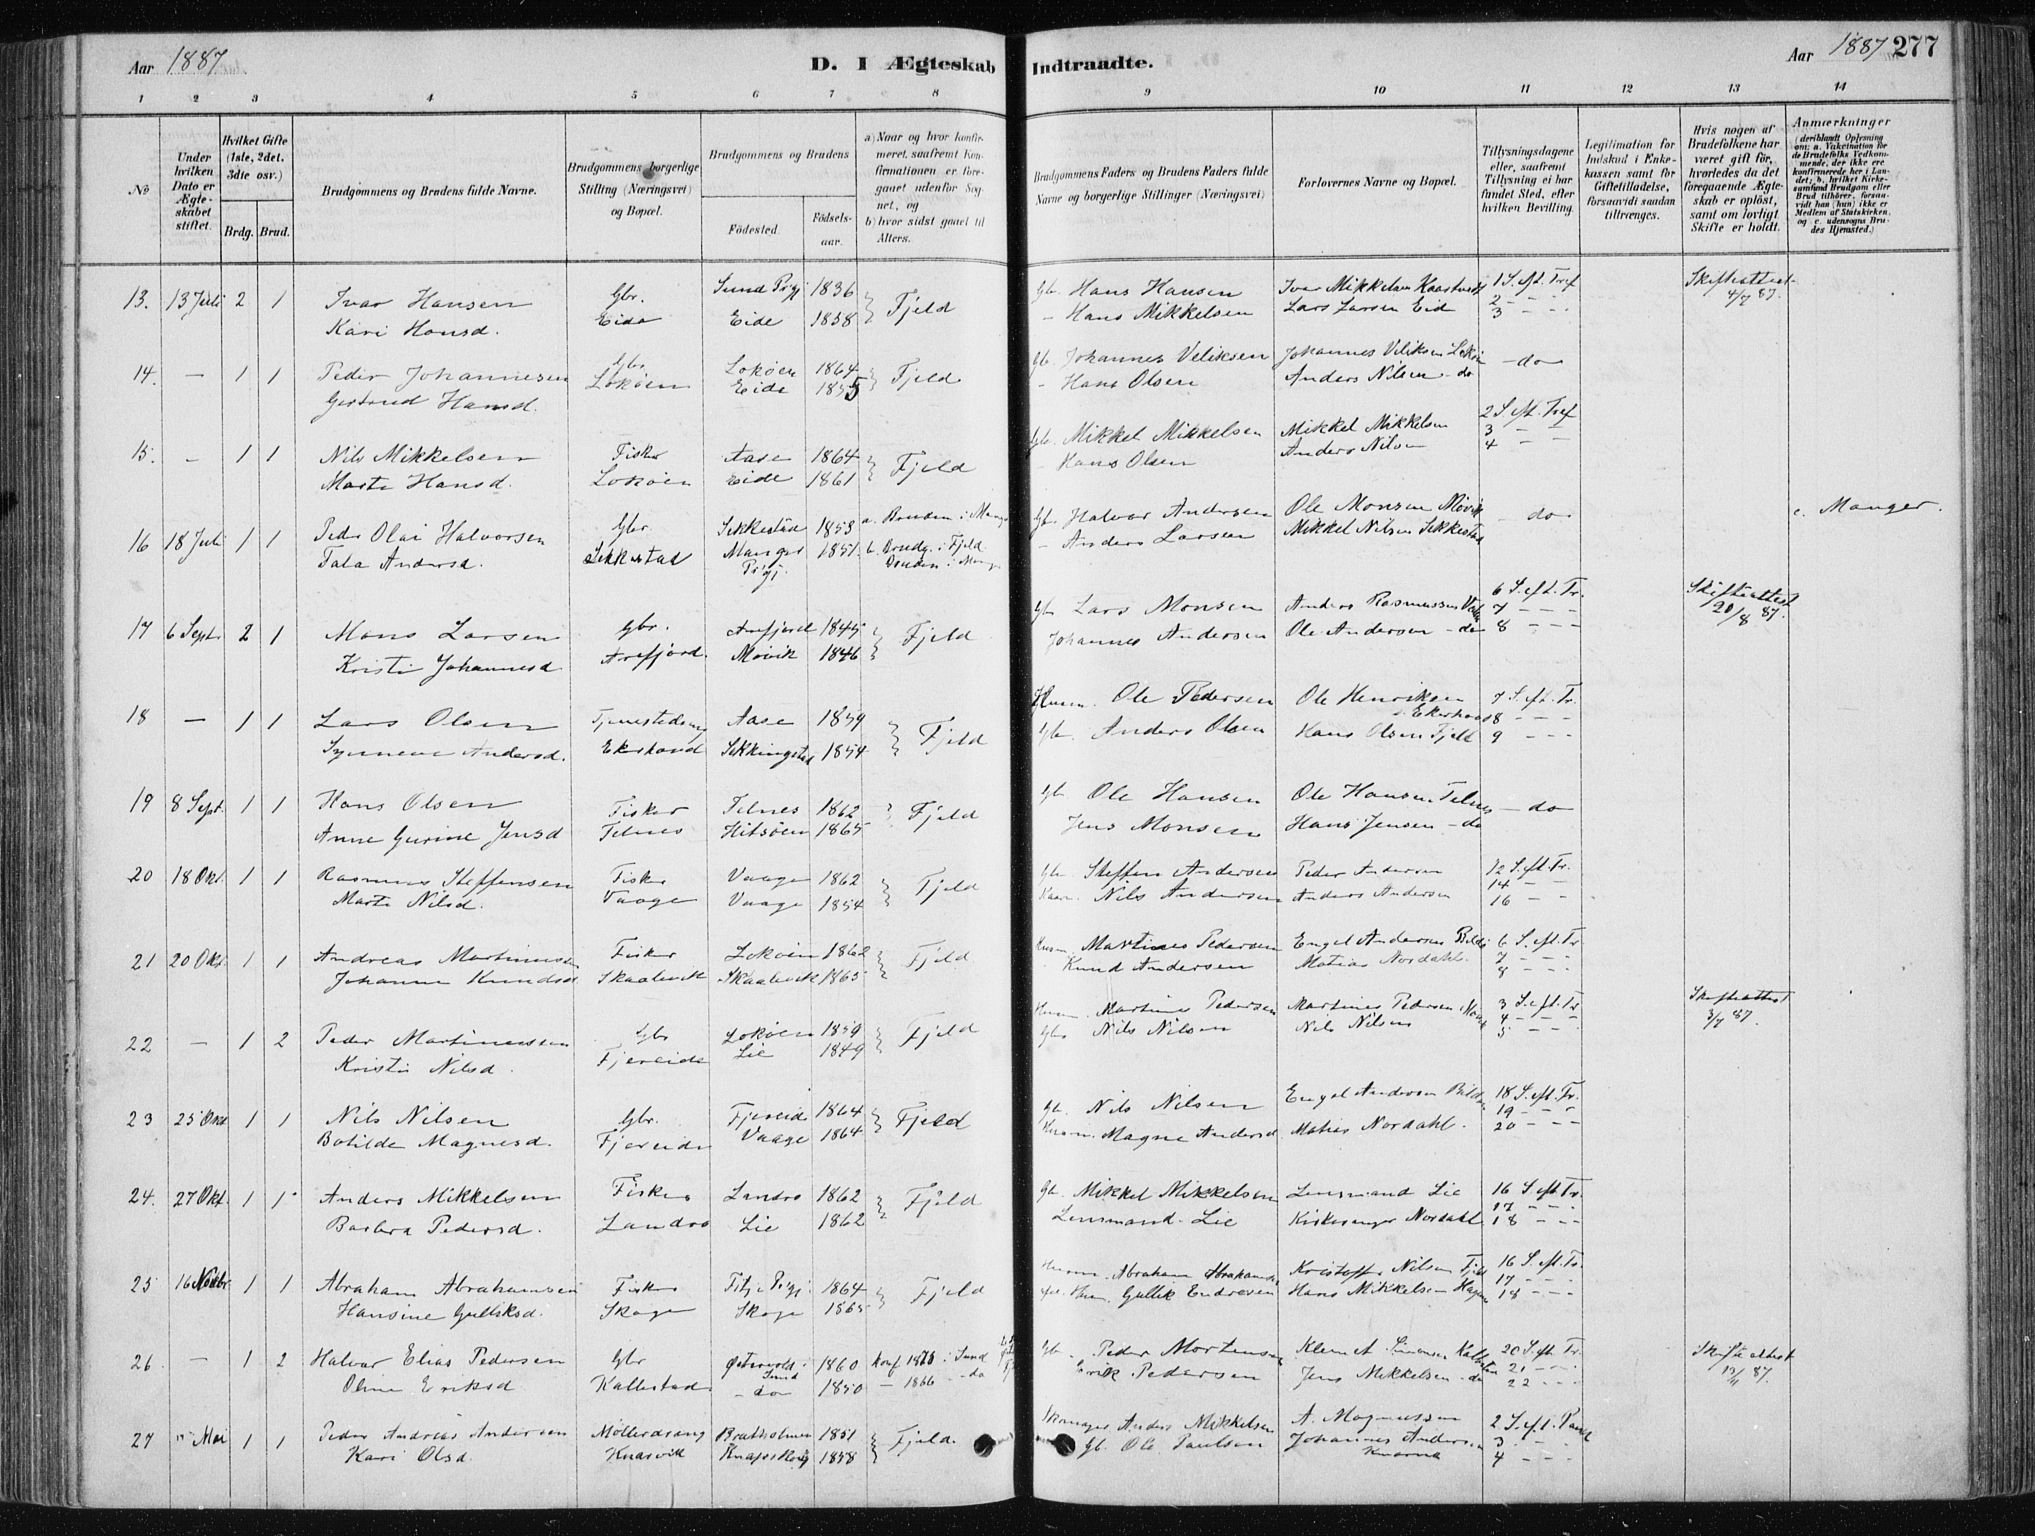 Aar 1887
D. I Ægteskab Indtraadte.
Aar 1887 277
1 2 3 4 5 6 7 8 9 10 11 12 13 14
No
Under hvilken Dato er Ægteskabet stiftet.
Hvilket Gifte (1ste, 2det, 3die osv.)
Brdg. Brud.
Brudgommens og Brudens fulde Navne.
Brudgommens borgerlige Stilling (Næringsvei) og Bopæl.
Brudgommens og Brudens
Fødested.
Fødselsaar.
a) Naar og hvor konfirmeret, saafremt Konfirmationen er foregaaet udenfor Sognet, og
b) hvor sidst gaaet til Alters.
Brudgommens Faders og Brudens Faders fulde Navne og borgerlige Stillinger (Næringsvei)
Forlovernes Navne og Bopæl.
Tillysningsdagene eller, saafremt Tillysning ei har fundet Sted, efter hvilken Bevilling.
Legitimation for Indskud i Enkekassen samt for Giftetilladelse, forsaavidt saadan tiltrænges.
Hvis nogen af Brudefolkene har været gift før, hvorledes da det foregaaende Ægteskab er opløst, samt om lovligt Skifte er holdt.
Anmærkninger
(deriblandt Oplysning om: a. Vakcination for de Brudefolks Vedkommende, der ikke ere konfirmerede her i Landet; b. hvilket Kirkesamfund Brudgom eller Brud tilhører, forsaavidt han (hun) ikke er Medlem af Statskirken, og c. udensogns Brudes Hjemsted.)
13. 13 Juli 2 1 Ivar Hansen Gbr. Sund Prgj 1836 Fjeld Gb. Hans Hansen Iver Mikkelsen 1 S. eft. Tref Skifteattest
Kari Hansd. Eide Eide 1858 - Hans Mikkelsen Lars Larsen Eide 2 - - - 4/7 87.
3 - - -
14. - 1 1 Peder Johannesen Gbr. Lokøen 1864 Fjeld Gb. Johannes Veliksen Johannes Veliksen Lokøen - do
Gertrud Hansd. Lokøen Eide 1855 - Hans Olsen Anders Nilsen - do
15. - 1 1 Nils Mikkelsen Fisker Aase 1864 Fjeld Gb. Mikkel Mikkelsen Mikkel Mikkelsen 2 S. eft. Tref
Marte Hansd. Lokøen Eide 1861 - Hans Olsen Anders Nilsen 3 - -
4 - -
16 18 Juli 1 1 Peder Olai Halvorsen Gbr Sekkestad 1853 a. Bruden i Manger Gb. Halvor Andersen Ole Monsen Møvik - do c. Manger.
Anders d. Sekkestad Manger 1851. b. Brudg. i Fjeld - Anders Larsen Mikkel Nilsen Sekkestad
Prgj. Bruden i Manger
17 6 Sept. 2 1 Mons Larsen Gbr. Arefjord 1845 Fjeld Gb. Lars Monsen Anders Rasmussen 6 S. eft. Tr. Skifteattest
Kristi Johannesd. Arefjord. Møvik 1846 Johannes Andersen Ole Andersen - do 7 - - - 20/8 87.
8 - - -
18 - 1 1 Lars Olsen Aase 1859 Fjeld Husm. Ole Pedersen Ole Henriksen 7 S. eft. Tr.
Synneve Andersd. Ekerhovd Sekkingstad 1854 Gb. Anders Olsen Ekerhovd 8 - - -
Hans Olsen Fjeld 9 - - -
19 8 Sept. 1 1 Hans Olsen Fisker Telnes 1862 Fjeld Gb Ole Hansen Ole Hansen Telnes - do
Anne Gurine Jensd Telnes Hitsøen 1865 Jens Monsen Hans Jensen - do
20 18 Okt. 1 1 Rasmus Steffensen Fisker Vaage 1862 Fjeld Gb. Steffen Andersen Peder Andersen 12 S. eft. Tr.
Marte Nilsd. Vaage Vaage 1854 Nils Andersen Anders Andersen 14 - - -
16 - -
21 20 Okt. 1 1 Andreas Martinussen Fisker Lokøen 1862 Fjeld Husm Martines Pedersen Engel Andersen Bildø 6 S. eft. Tr
Johanne Knudsd Skaalevik Skaalevik 1865 - Knud Andersen Matias Nordahl. 7 - - -
8 - - -
22 - 1 2 Peder Martinussen Gbr Lokøen 1859 Fjeld Husm. Martines Pedersen Martines Pedersen 3 S. eft. Tr Skifteattest
Kristi Nilsd. Fjereide Lie 1849 Gbr. Nils Nilsen Nils Nilsen 4 - - - 3/7 87.
5
23 25 Okt 1 1 Nils Nilsen Gbr. Fjereide 1864 Fjeld Gb. Nils Nilsen Engel Andersen Bildøen 18 S. eft. Tr.
Botilde Magnesd. Fjereide Vaage 1864 Husm. Magne Andersd Matias Nordahl. 19 - - -
20 - - -
24. 27 Okt. 1 1 Anders Mikkelsen Fisker Landro 1862 Fjeld Gb. Mikkel Mikkelsen Lensmand Lie 16 S. eft. Tr.
Barbra Pedersd. Landro Lie 1862 Lensmand Lie Kirkesanger Nordahl 17 - - -
18 - - -
25 16 Novbr. 1 1 Abraham Abrahamsen Fisker Fitje Prgj. 1864 Fjeld Husm. Abraham Abrahamsen Kristoffer Nilsen Fjeld 16 S. eft. Tr.
Hansine Gulliksd. Skoge Skoge 1865 Gullik Endresen Hans Mikkelsen 17 - - -
18 - - -
26 - 1 2 Halvar Elias Pedersen Gbr Østervold i Sund 1860 konf 1875 i Sund Gb. Peder Mortensen Klemet Simonsen Kallestad 20 S. eft. Tr Skifteattest
Oline Eriksd Kallestad - do - 1850 - 1866 - do Erik Pedersen Jens Mikkelsen - do 21 - - - 19/11 87.
22 - - -
27 Mai 1 1 Peder Andreas Andersen Møllerdreng Bratholmen 1851 Fjeld. Anders Mikkelsen A. Magnussen 2 S. eft. Paask
Kari Olsd. Knarvik Knapskog 1858 Gb. Ole Paulsen Johannes Andersen 3 - - -
Knarvik 4 - - -